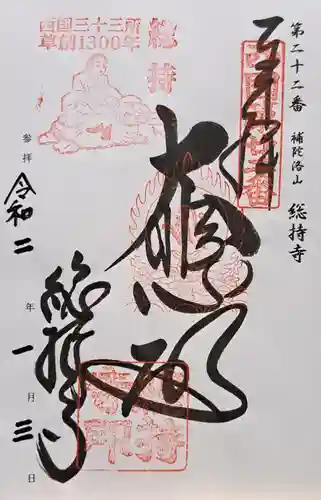 第二十二番 補陀洛山 総持寺
奉拝
西国三十三所
草創1300年
総持
大悲殿
総持寺
参拝 令和二年一月三日